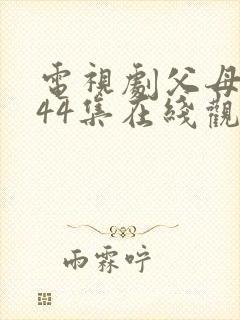 電視劇父母
44集在綫觀
雨霖咛